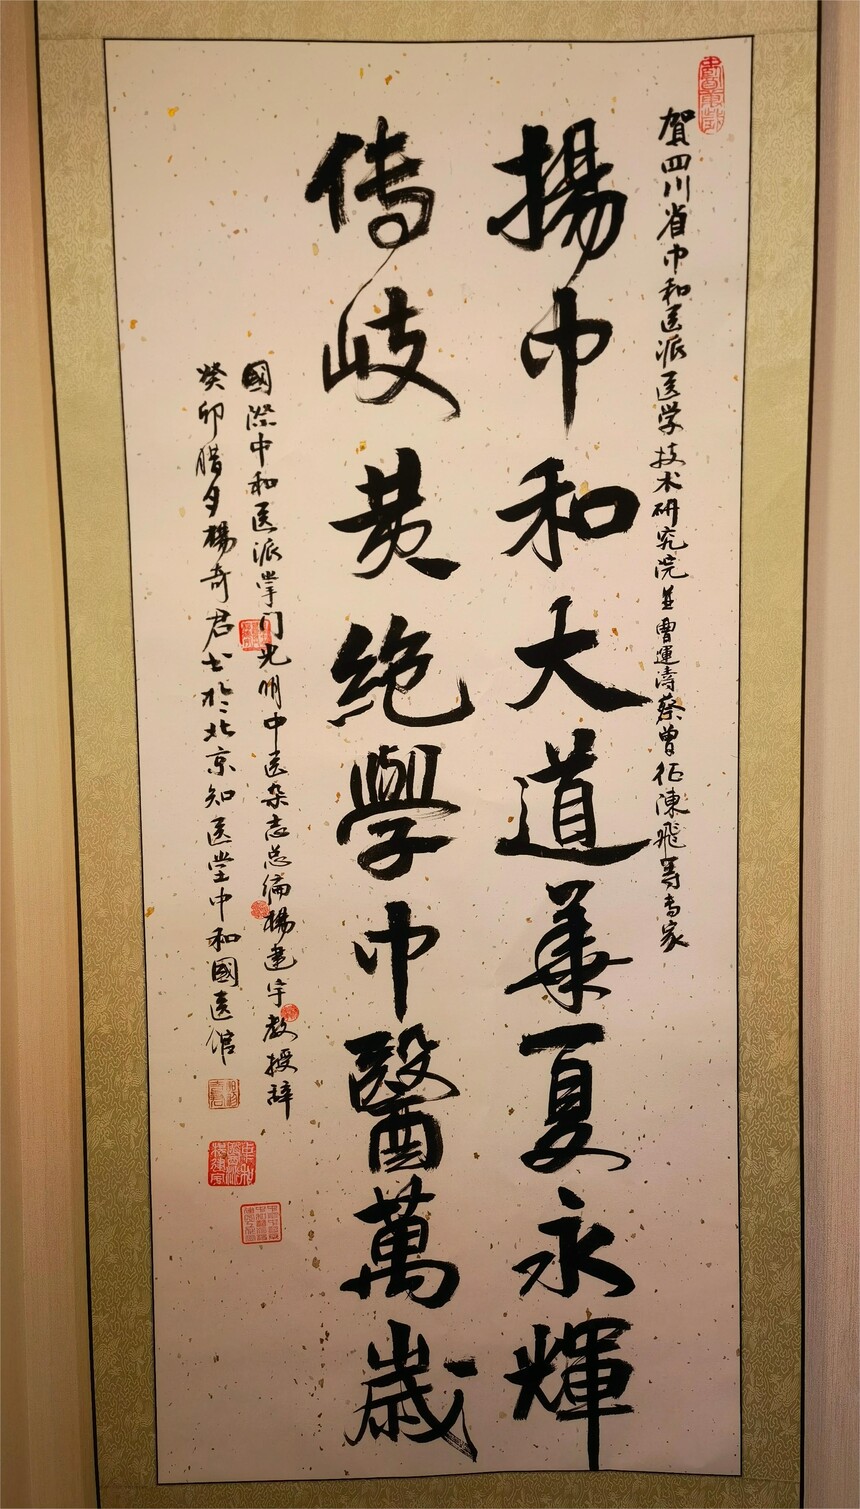 賀四川省中和医派医学技术研究院並曹運濤蔡曾征陳飛等专家
揚中和大道華夏永輝
传岐黄绝學中醫萬歳
國際中和医派掌门光明中医杂志总编楊建宇教授辞
癸卯腊月楊奇君书於北京知医堂中和國医馆